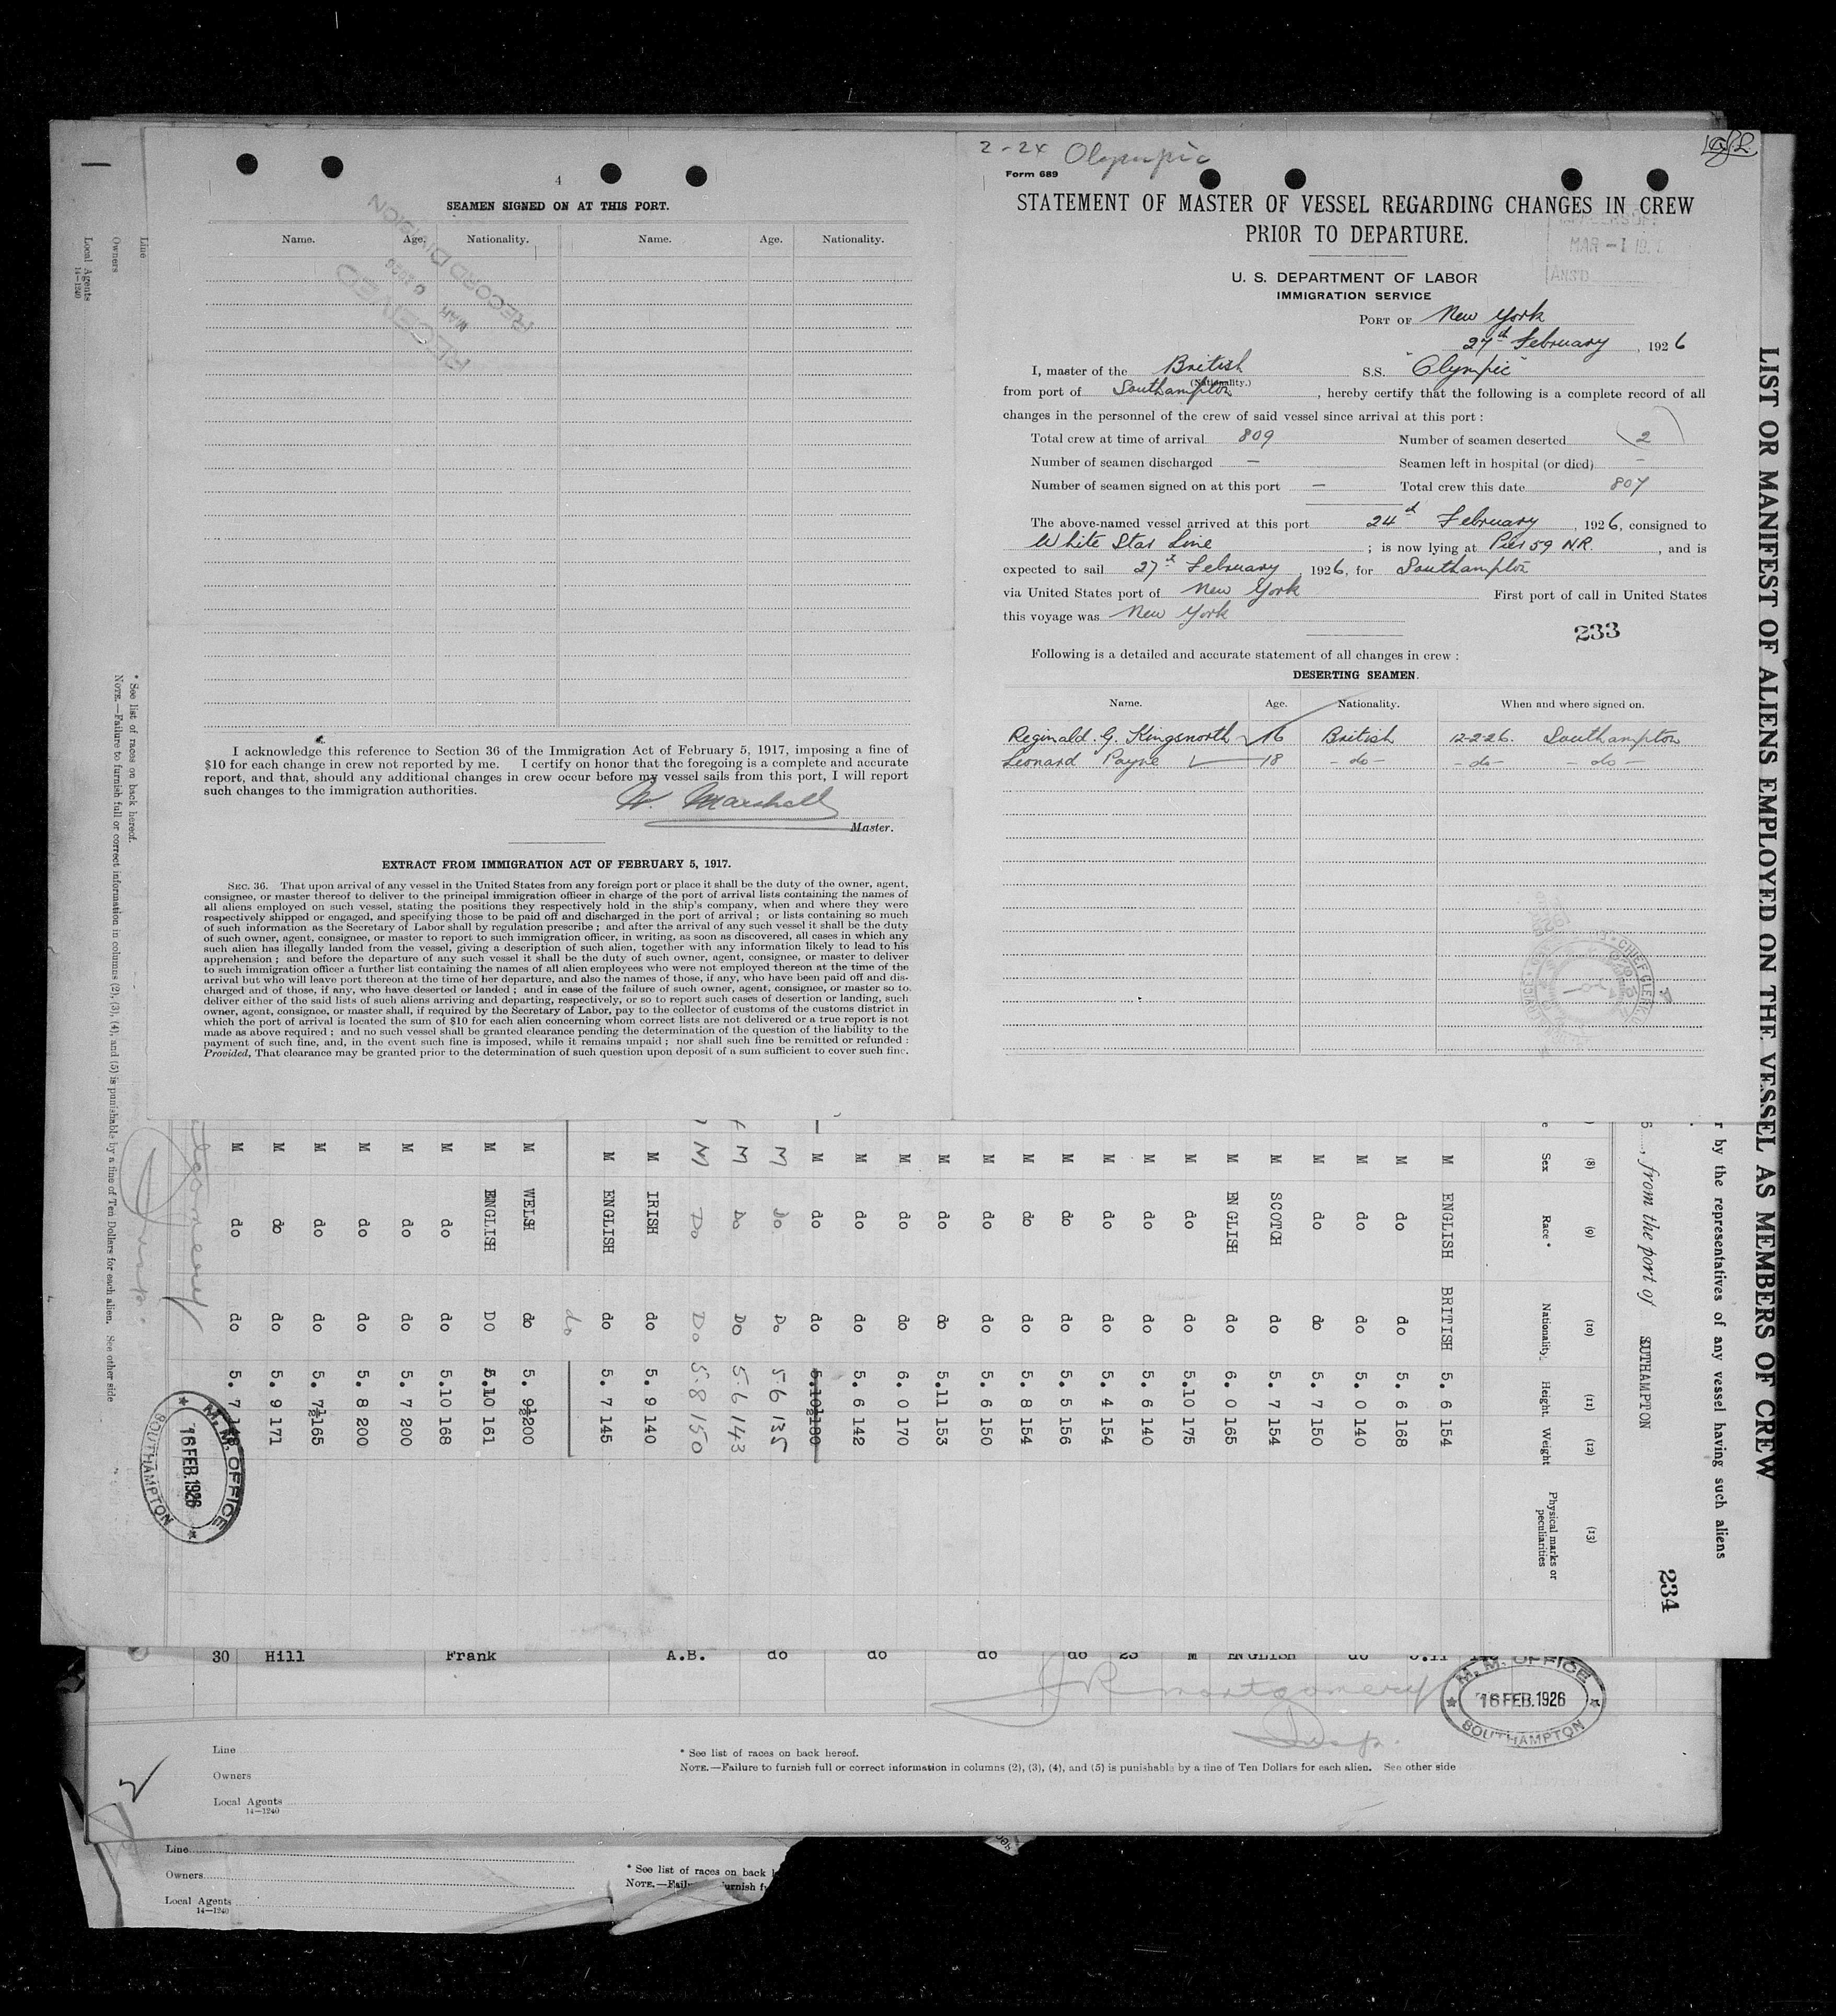 2-24 Olympic
Form 689
STATEMENT OF MASTER OF VESSEL REGARDING CHANGES IN CREW
PRIOR TO DEPARTURE.
MAR -1 19
ANS'D
U. S. DEPARTMENT OF LABOR
IMMIGRATION SERVICE
PORT OF New York
27th February, 1926
I, master of the British S.S. "Olympic"
(Nationality.)
from port of Southampton, hereby certify that the following is a complete record of all
changes in the personnel of the crew of said vessel since arrival at this port :
Total crew at time of arrival 809 Number of seamen deserted 2
Number of seamen discharged — Seamen left in hospital (or died) -
Number of seamen signed on at this port — Total crew this date 807
The above-named vessel arrived at this port 24th February, 1926, consigned to
White Star Line ; is now lying at Pier 59 N.R., and is
expected to sail 27th February, 1926, for Southampton
via United States port of New York First port of call in United States
this voyage was New York
233
Following is a detailed and accurate statement of all changes in crew :
DESERTING SEAMEN.
Name. Age. Nationality. When and where signed on.
Reginald G. Kingsnorth 16 British 12-2-26. Southampton
Leonard Payne 18 - do - - do - - do -
4
SEAMEN SIGNED ON AT THIS PORT.
Name. Age. Nationality. Name. Age. Nationality.
RECEIVED
MAR
RECORD DIVISION
I acknowledge this reference to Section 36 of the Immigration Act of February 5, 1917, imposing a fine of
$10 for each change in crew not reported by me. I certify on honor that the foregoing is a complete and accurate
report, and that, should any additional changes in crew occur before my vessel sails from this port, I will report
such changes to the immigration authorities.
W. Marshall
Master.
EXTRACT FROM IMMIGRATION ACT OF FEBRUARY 5, 1917.
SEC. 36. That upon arrival of any vessel in the United States from any foreign port or place it shall be the duty of the owner, agent,
consignee, or master thereof to deliver to the principal immigration officer in charge of the port of arrival lists containing the names of
all aliens employed on such vessel, stating the positions they respectively hold in the ship's company, when and where they were
respectively shipped or engaged, and specifying those to be paid off and discharged in the port of arrival ; or lists containing so much
of such information as the Secretary of Labor shall by regulation prescribe ; and after the arrival of any such vessel it shall be the duty
of such owner, agent, consignee, or master to report to such immigration officer, in writing, as soon as discovered, all cases in which any
such alien has illegally landed from the vessel, giving a description of such alien, together with any information likely to lead to his
apprehension ; and before the departure of any such vessel it shall be the duty of such owner, agent, consignee, or master to deliver
to such immigration officer a further list containing the names of all alien employees who were not employed thereon at the time of the
arrival but who will leave port thereon at the time of her departure, and also the names of those, if any, who have been paid off and dis-
charged and of those, if any, who have deserted or landed ; and in case of the failure of such owner, agent, consignee, or master so to
deliver either of the said lists of such aliens arriving and departing, respectively, or so to report such cases of desertion or landing, such
owner, agent, consignee, or master shall, if required by the Secretary of Labor, pay to the collector of customs of the customs district in
which the port of arrival is located the sum of $10 for each alien concerning whom correct lists are not delivered or a true report is not
made as above required ; and no such vessel shall be granted clearance pending the determination of the question of the liability to the
payment of such fine, and, in the event such fine is imposed, while it remains unpaid ; nor shall such fine be remitted or refunded :
Provided, That clearance may be granted prior to the determination of such question upon deposit of a sum sufficient to cover such fine.
LIST OR MANIFEST OF ALIENS EMPLOYED ON THE VESSEL AS MEMBERS OF CREW
r by the representatives of any vessel having such aliens
, from the port of SOUTHAMPTON
234
(8) (9) (10) (11) (12) (13)
Sex Race * Nationality. Height. Weight Physical marks or peculiarities
M ENGLISH BRITISH 5. 6 154
M do do 5. 6 168
M do do 5. 0 140
M do do 5. 7 150
M SCOTCH do 5. 7 154
M ENGLISH do 6. 0 165
M do do 5.10 175
M do do 5. 6 140
M do do 5. 4 154
M do do 5. 5 156
M do do 5. 8 154
M do do 5. 6 150
M do do 5.11 153
M do do 6. 0 170
M do do 5. 6 142
M do do 5.10½180
M do. Do 5·6 135
M Do Do 5·6 143
M Do Do 5·8 150
M IRISH do 5. 9 140
M ENGLISH do 5. 7 145
do
M WELSH do 5. 9½200
M ENGLISH DO 5.10 161
M do do 5.10 168
M do do 5. 7 200
M do do 5. 8 200
M do do 5. 7½165
M do do 5. 9 171
M do do 5. 7
M. M. OFFICE
16 FEB.1926
SOUTHAMPTON
Line
Owners
Local Agents
14—1240
* See list of races on back hereof.
NOTE.—Failure to furnish full or correct information in columns (2), (3), (4), and (5) is punishable by a fine of Ten Dollars for each alien. See other side
30 Hill Frank A.B. do do do do 23 M ENGLISH do 5.11
J R Montgomery
M. M. OFFICE
16 FEB.1926
SOUTHAMPTON
Line
Owners
Local Agents
14—1240
* See list of races on back hereof.
NOTE.—Failure to furnish full or correct information in columns (2), (3), (4), and (5) is punishable by a fine of Ten Dollars for each alien. See other side
2
Line
Owners
Local Agents
14—1240
* See list of races on back
NOTE.—Fail urnish